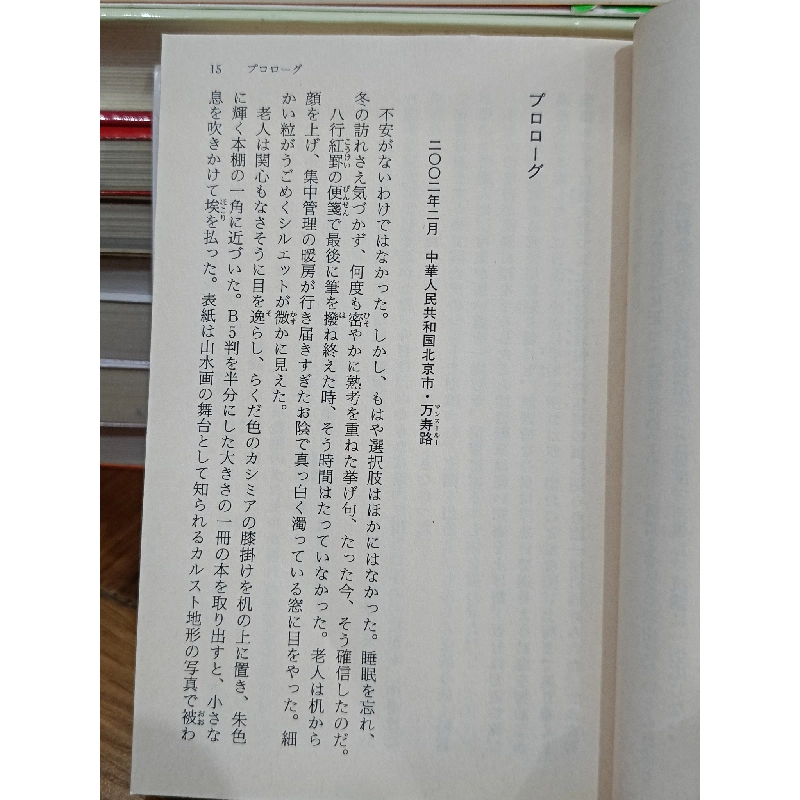 15 プロローグ
プロローグ
二〇〇二年二月 中華人民共和国北京市・万寿路
不安がないわけではなかった。しかし、もはや選択肢はほかにはなかった。睡眠を忘れ、
冬の訪れさえ気づかず、何度も密やかに熟考を重ねた挙げ句、たった今、そう確信したのだ。
八行紅罫の便箋で最後に筆を撥ね終えた時、そう時間はたっていなかった。老人は机から
顔を上げ、集中管理の暖房が行き届きすぎたお陰で真っ白く濁っている窓に目をやった。細
かい粒がうごめくシルエットが微かに見えた。
老人は関心もなさそうに目を逸らし、らくだ色のカシミアの膝掛けを机の上に置き、朱色
に輝く本棚の一角に近づいた。B5判を半分にした大きさの一冊の本を取り出すと、小さな
息を吹きかけて埃を払った。表紙は山水画の舞台として知られるカルスト地形の写真で被わ